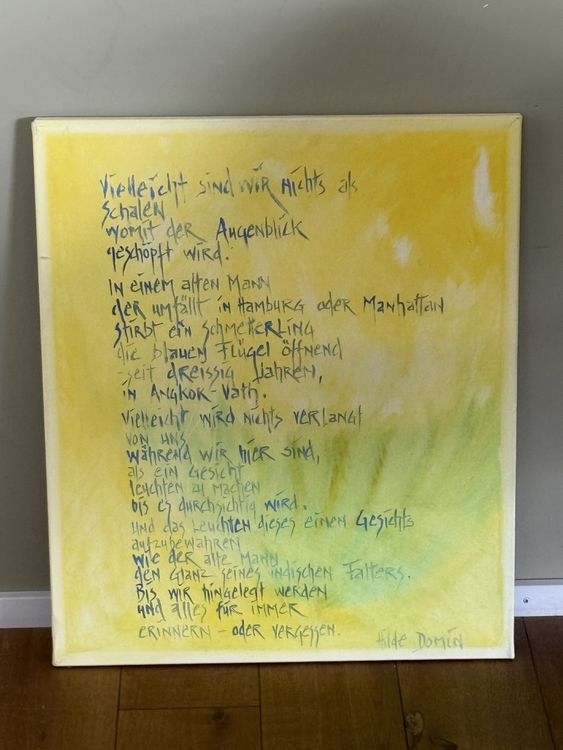 Vielleicht sind wir nichts als
Schalen
womit der Augenblick
geschöpft wird.
In einem alten Mann
der umfällt in Hamburg oder Manhattan
stirbt ein Schmetterling
die blauen Flügel öffnend
-seit dreissig Jahren,
in Angkor-Vath.
Vielleicht wird nichts verlangt
von uns
während wir hier sind,
als ein Gesicht
leuchten zu machen
bis es durchsichtig wird.
und das Leuchten dieses einen Gesichts
aufzubewahren
wie der alte Mann
den Glanz seines indischen Falters.
Bis wir hingelegt werden
und alles für immer
erinnern - oder vergessen.
Hilde Domin